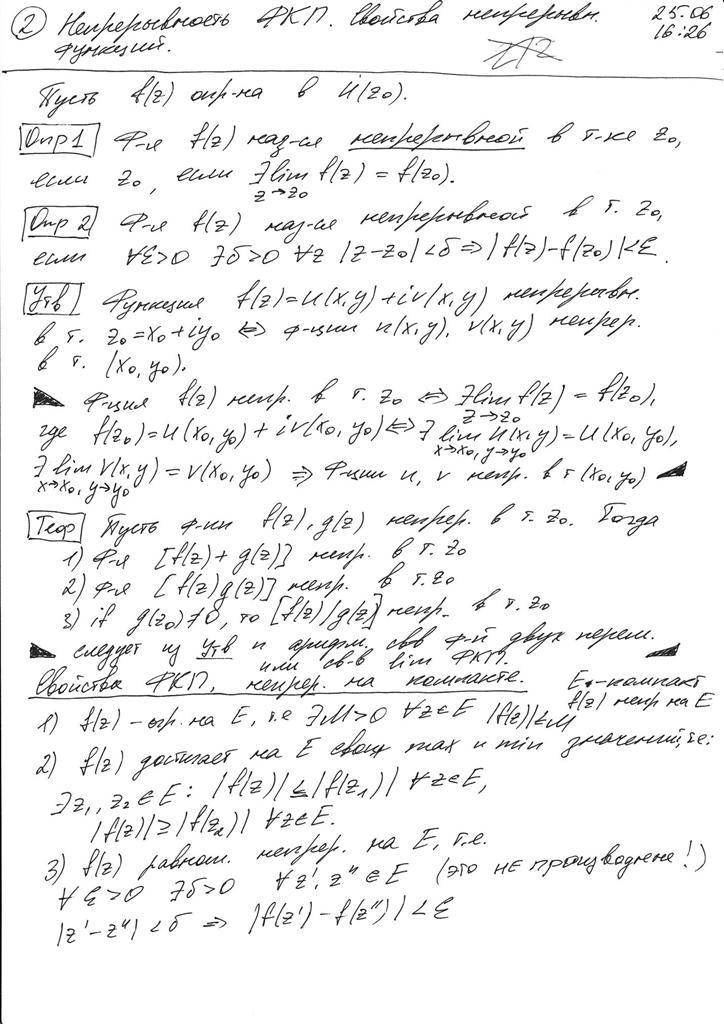 2 Непрерывность ФКП. Свойства непрерывн. 25.06
функций. 16:26
Пусть f(z) опр-на в U(z₀).
Опр 1 Ф-я f(z) наз-ся непрерывной в т-ке z₀,
если z₀, если ∃ lim f(z) = f(z₀).
z→z₀
Опр 2 Ф-я f(z) наз-ся непрерывной в т. z₀,
если ∀ε>0 ∃δ>0 ∀z |z-z₀|<δ ⇒ |f(z)-f(z₀)|<ε.
Утв Функция f(z)=u(x,y)+iv(x,y) непрерывн.
в т. z₀=x₀+iy₀ ⇔ ф-ции u(x,y), v(x,y) непрер.
в т. (x₀,y₀).
Ф-ция f(z) непр. в т. z₀ ⇔ ∃ lim f(z) = f(z₀),
z→z₀
где f(z₀)=u(x₀,y₀)+iv(x₀,y₀) ⇔ ∃ lim u(x,y)=u(x₀,y₀),
x→x₀, y→y₀
∃ lim v(x,y)=v(x₀,y₀) ⇒ Ф-ции u, v непр. в т (x₀,y₀)
x→x₀, y→y₀
Теор Пусть ф-ии f(z), g(z) непрер. в т. z₀. Тогда
1) Ф-я [f(z)+g(z)] непр. в т. z₀
2) Ф-я [f(z)g(z)] непр. в т. z₀
3) if g(z₀)≠0, то [f(z)/g(z)] непр. в т. z₀
следует из Утв и арифм. свв ф-й двух перем.
или св-в lim ФКП.
Свойства ФКП, непрер. на компакте. E - компакт
f(z) непр на E
1) f(z) - огр. на E, т.е ∃M>0 ∀z∈E |f(z)|<M
2) f(z) достигает на E своих max и min значений, т.е:
∃z₁, z₂∈E: |f(z)|≤|f(z₁)| ∀z∈E,
|f(z)|≥|f(z₂)| ∀z∈E.
3) f(z) равном. непрер. на E, т.е.
∀ε>0 ∃δ>0 ∀z', z"∈E (это НЕ производные!)
|z'-z"|<δ ⇒ |f(z')-f(z")|<ε